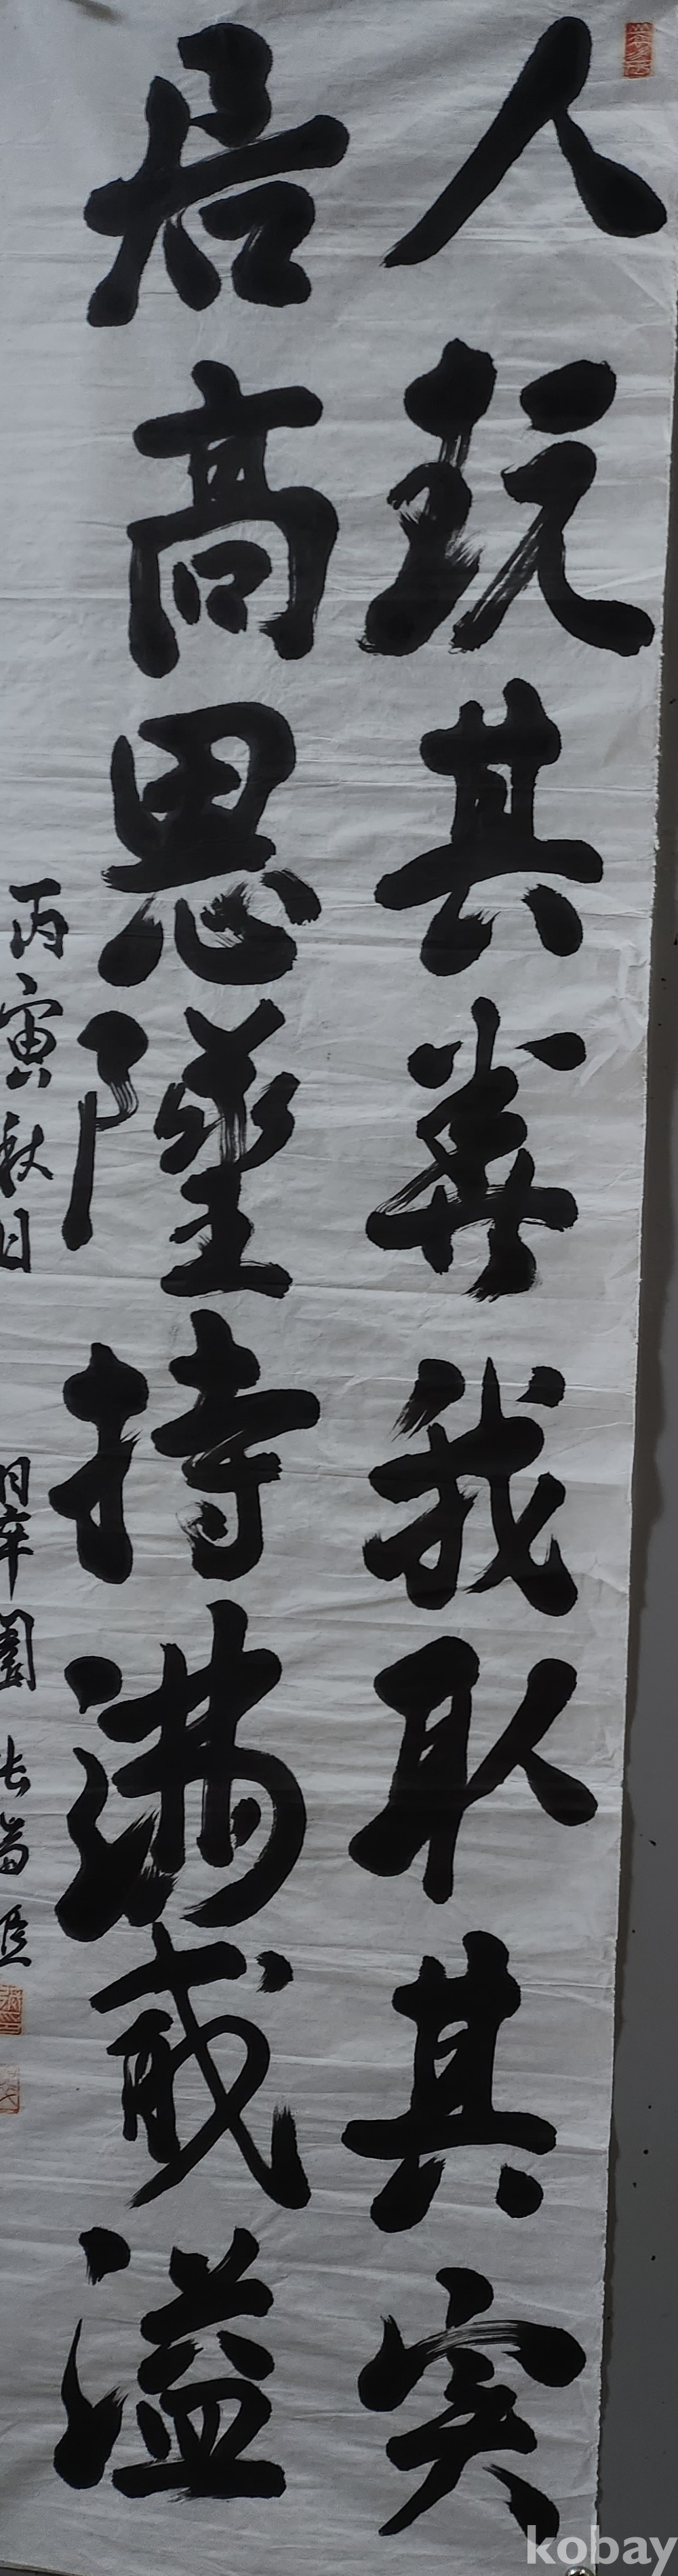 人玩其華我取其実
居高思墜持満戒溢
丙寅秋日
kobay